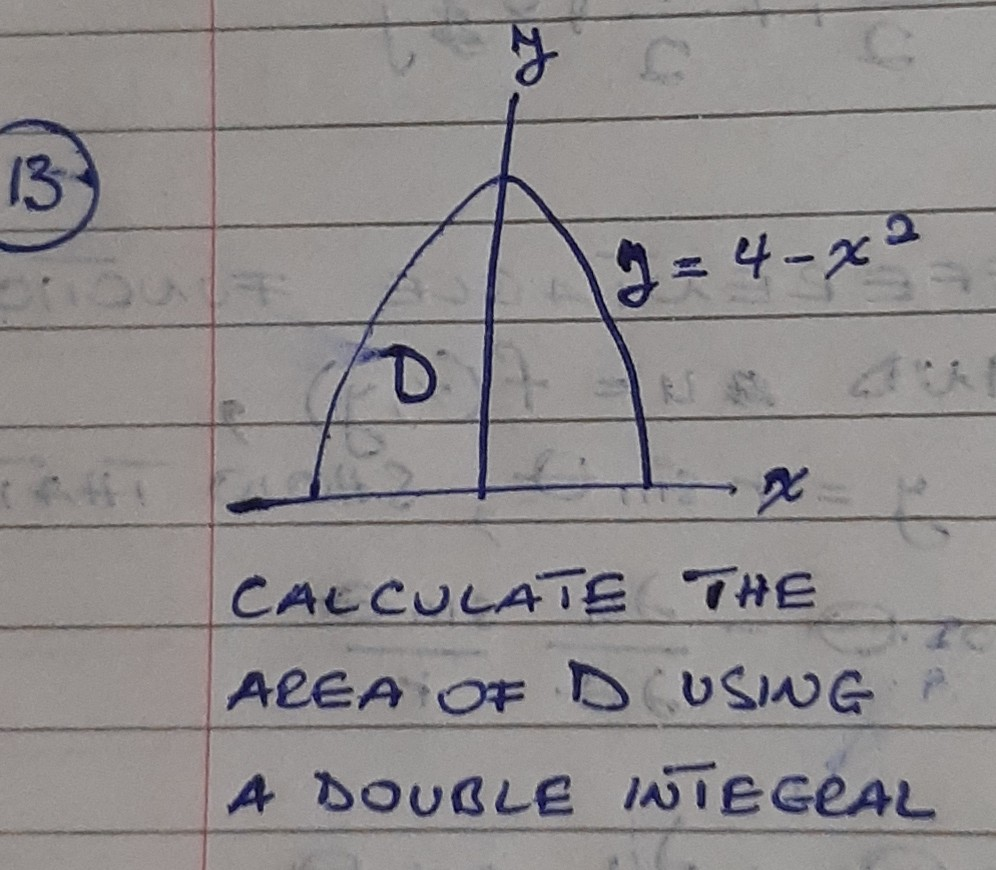 y
13
y = 4 - x²
D
x
CALCULATE THE
AREA OF D USING
A DOUBLE INTEGRAL